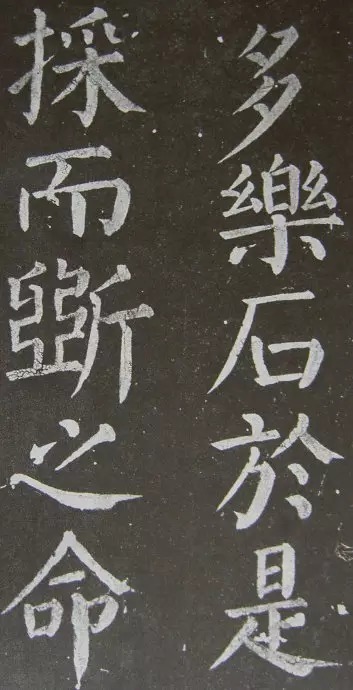 多樂石於是
採而斵之命